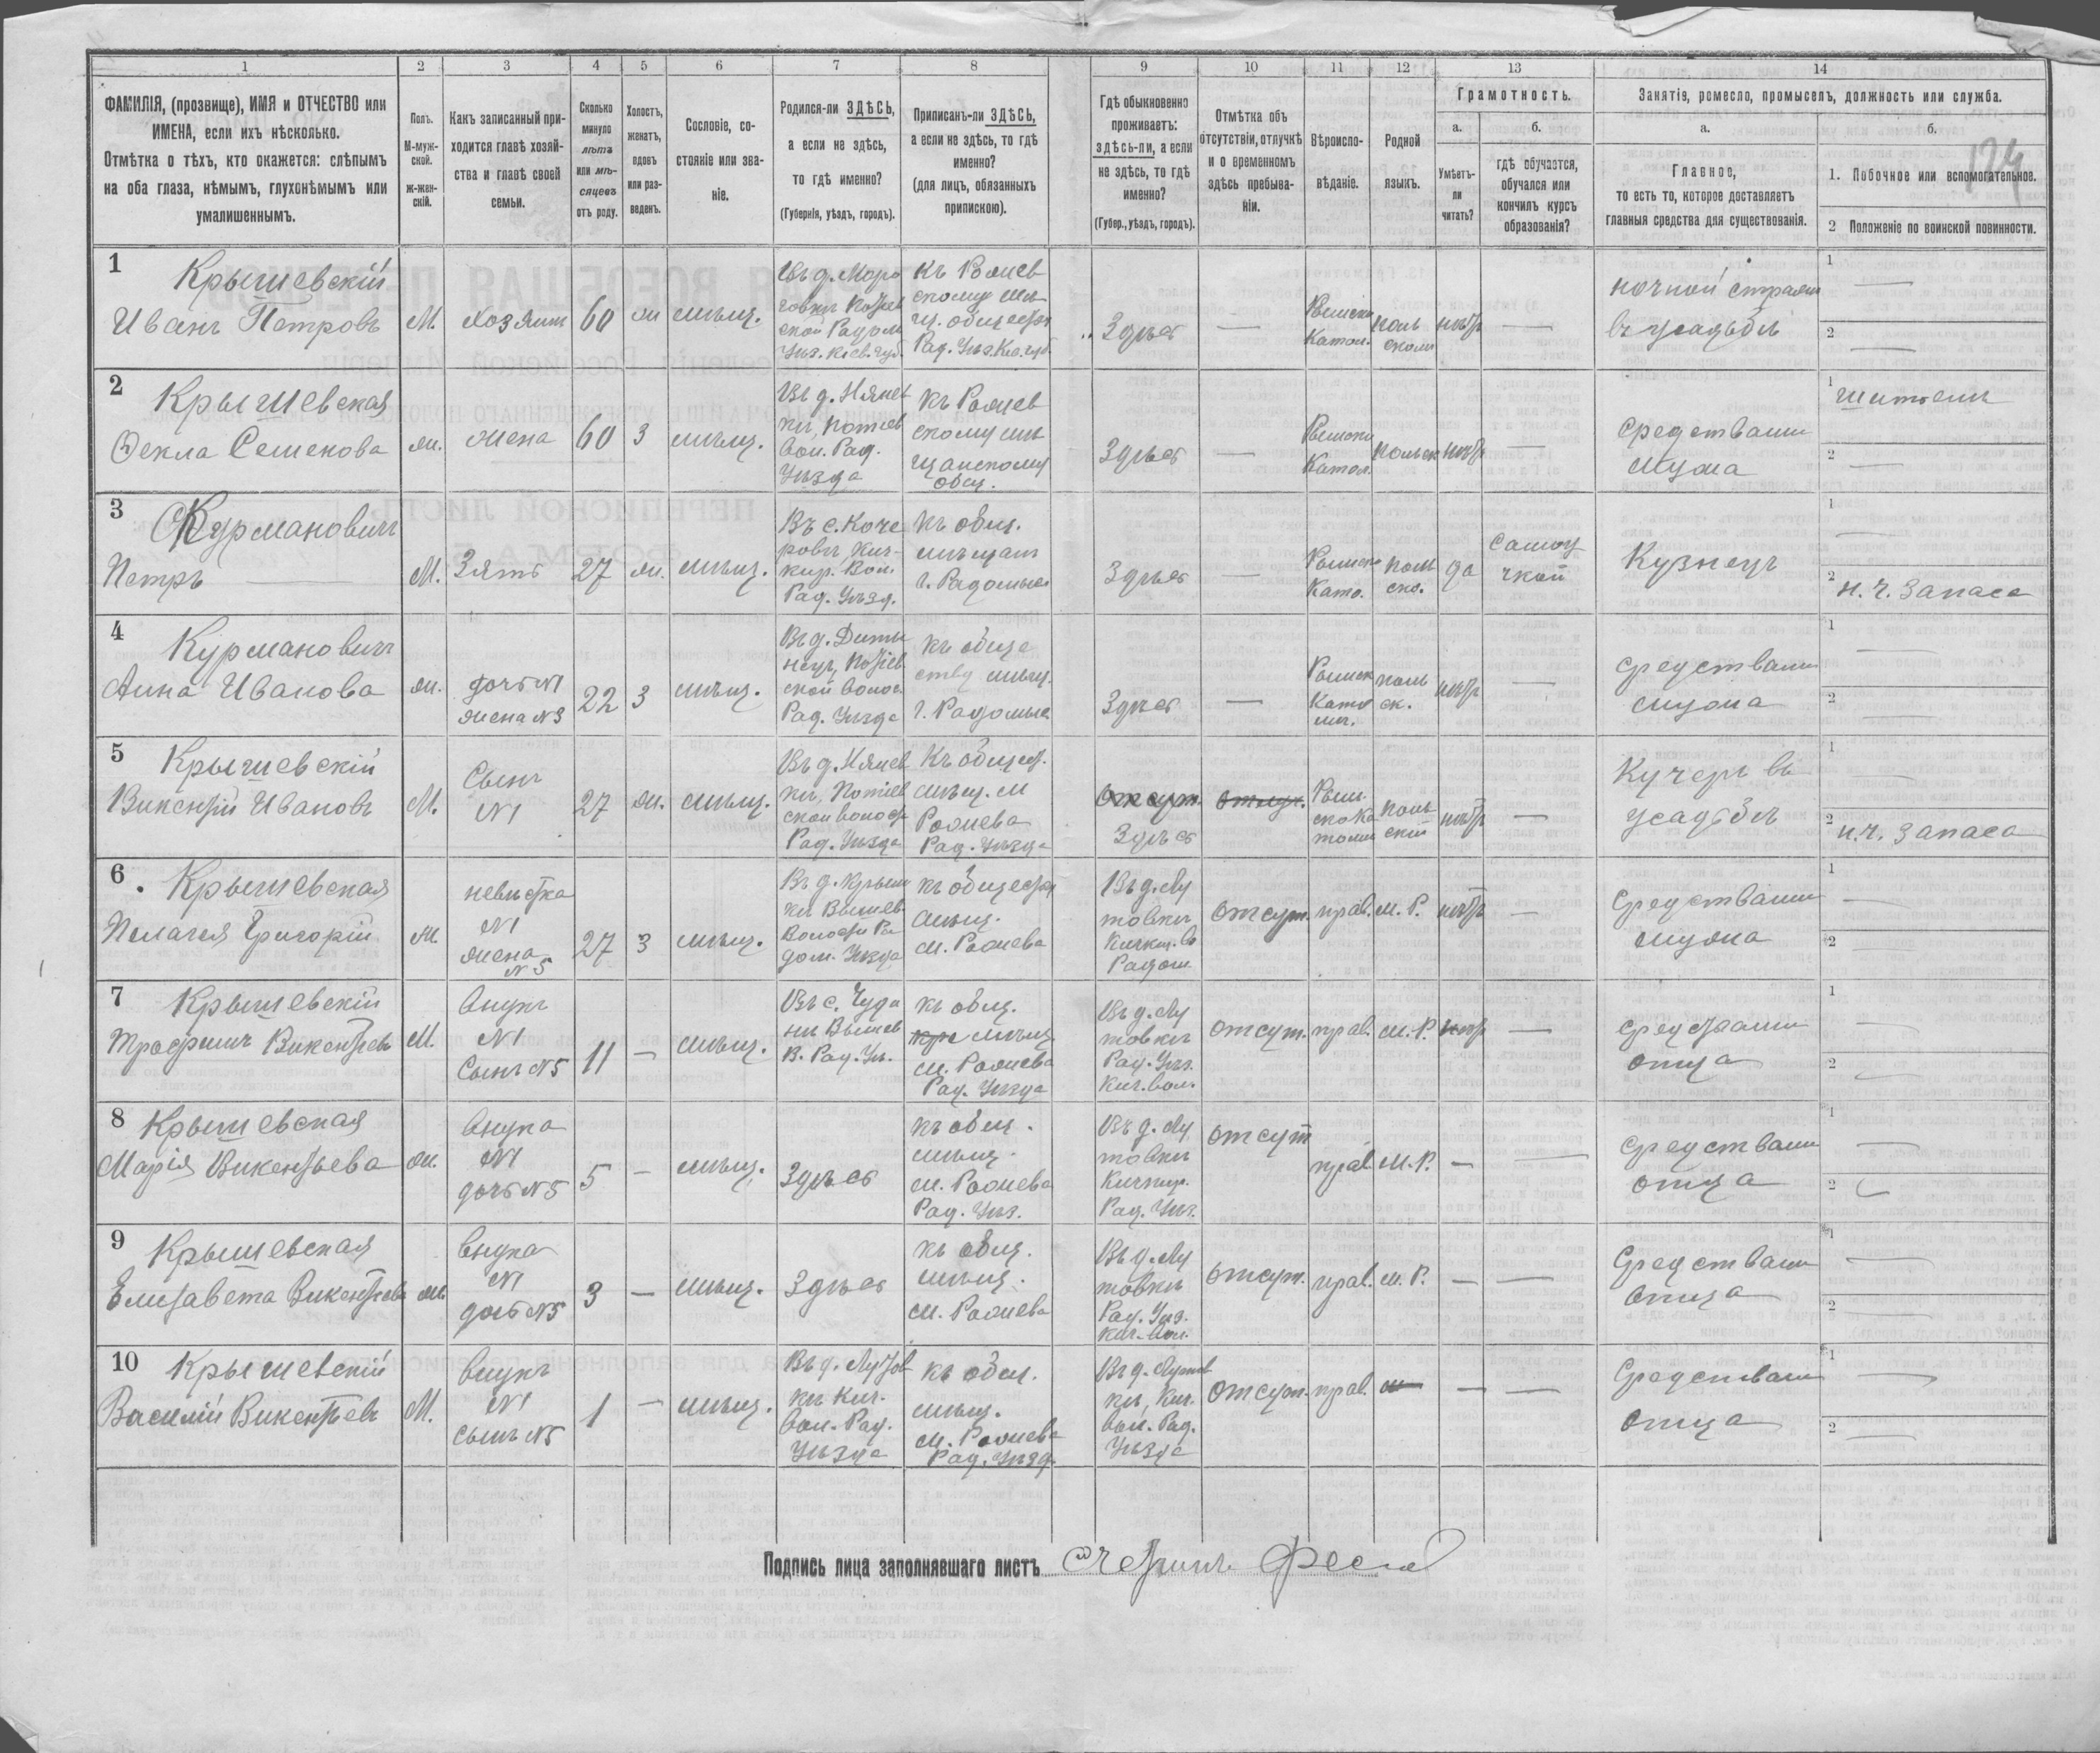 1 2 3 4 5 6 7 8 9 10 11 12 13 14
ФАМИЛІЯ, (прозвище), ИМЯ и ОТЧЕСТВО или
ИМЕНА, если ихъ нѣсколько.
Отмѣтка о тѣхъ, кто окажется: слѣпымъ
на оба глаза, нѣмымъ, глухонѣмымъ или
умалишеннымъ.
Полъ.
М-муж-
ской.
ж-жен-
скій.
Какъ записанный при-
ходится главѣ хозяй-
ства и главѣ своей
семьи.
Сколько
минуло
лѣтъ
или мѣ-
сяцевъ
отъ роду.
Холостъ,
женатъ,
вдовъ
или раз-
веденъ.
Сословіе, со-
стояніе или зва-
ніе.
Родился-ли ЗДѢСЬ,
а если не здѣсь,
то гдѣ именно?
(Губернія, уѣздъ, городъ).
Приписанъ-ли ЗДѢСЬ,
а если не здѣсь, то гдѣ
именно?
(для лицъ, обязанныхъ
припискою).
Гдѣ обыкновенно
проживаетъ:
здѣсь-ли, а если
не здѣсь, то гдѣ
именно?
(Губер., уѣздъ, городъ).
Отмѣтка объ
отсутствіи, отлучкѣ
и о временномъ
здѣсь пребыва-
ніи.
Вѣроиспо-
вѣданіе.
Родной
языкъ.
Грамотность.
а.
Умѣетъ-
ли
читать?
б.
гдѣ обучается,
обучался или
кончилъ курсъ
образованія?
Занятіе, ремесло, промыселъ, должность или служба.
а.
Главное,
то есть то, которое доставляетъ
главныя средства для существованія.
б.
1. Побочное или вспомогательное.
2 Положеніе по воинской повинности.
124
1
Крышевскій
Иванъ Петровъ
М.
Хозяинъ
60
ж
мѣщ.
Къ Рожев
скому мѣ
щ. обществу
Рад. Уѣз. Кіев. губ.
Здѣсь
—
Римско
Катол.
поль
скій
нѣтъ
—
ночной стражъ
въ усадьбѣ
1 —
2 —
2
Крышевская
Фекла Семенова
ж.
жена
60
З
мѣщ.
Въ д. Нянев
кѣ, Потіев
вол. Рад.
Уѣзда
къ Рожев
скому мѣ
щанскому
общ.
Здѣсь
—
Римско
Катол.
польск
нѣтъ
—
средствами
мужа
1
2 —
3
Курмановичъ
Петръ —
М.
Зять
27
ж.
мѣщ.
Въ с. Коче
ровѣ Кич-
кир. Вол.
Рад. Уѣзд.
къ общ.
мѣщанъ
г. Радомысл
Здѣсь
—
Римско
Като.
поль
ско.
да
самоу
чкой
Кузнецъ
1 —
2 н. ч. запаса
4
Курмановичъ
Анна Иванова
ж.
дочь №1
жена №3
22
З
мѣщ.
ской волос.
Рад. Уѣзда
къ обще
ству мѣщ.
г. Радомысл
Здѣсь
—
Римск
Като
лич.
поль
ск.
нѣтъ
—
средствами
мужа
1 —
2 —
5
Крышевскій
Викентій Ивановъ
М.
Сынъ
№1
27
ж.
мѣщ.
Въ д. Нянев
кѣ, Потіев
ской волости
Рад. Уѣзда
Къ общест.
мѣщ. м
Рожева
Рад. Уѣзда
Здѣсь
Рим
ско Ка
толич
поль
скій
нѣтъ
—
Кучеръ въ
усадьбѣ
1 —
2 н. ч. запаса
6
Крышевская
Пелагея Григорій
ж.
невѣстка
№1
жена
№5
27
З
мѣщ.
къ обществу
мѣщ.
м. Рожева
Въ д. Лу
товкѣ
отсут.
прав.
м. Р.
нѣтъ
—
Средствами
мужа
1 —
2 —
7
Крышевскій
Трофимъ Викентьевъ
М.
Внукъ
№1
Сынъ №5
11
—
мѣщ.
В. Рад. Уѣ.
къ общ.
мѣщ
м. Рожева
Рад. Уѣзда
Въ д. Лу
товкѣ
Рад. Уѣз.
Кич. вол.
отсут.
прав.
м. Р.
нѣтъ
—
средствами
отца
1 —
2 —
8
Крышевская
Марія Викентьева
ж.
внука
№1
дочь №5
5
—
мѣщ.
Здѣсь
къ общ.
мѣщ.
м. Рожева
Рад. Уѣз.
Въ д. Лу
товкѣ
Рад. Уѣз.
отсут
прав
м. Р.
—
—
средствами
отца
1 —
2
9
Крышевская
Елизавета Викентьева
ж.
внука
№1
дочь №5
3
—
мѣщ.
Здѣсь
къ общ.
мѣщ.
м. Рожева
Въ д. Лу
товкѣ
Рад. Уѣз.
Кич. Вол.
отсут.
прав.
м. Р.
—
—
Средствами
отца
1 —
2 —
10
Крышевскій
Василій Викентьевъ
М.
внукъ
№1
сынъ №5
1
—
мѣщ.
Въ д. Лутов
кѣ Кич.
вол. Рад.
Уѣзда
къ общ.
мѣщ.
м. Рожева
Рад. Уѣзд.
Въ д. Лутов
кѣ, Кич.
вол. Рад.
Уѣзда
отсут.
прав.
—
—
Средствами
отца
1 —
2 —
Подпись лица заполнявшаго листъ